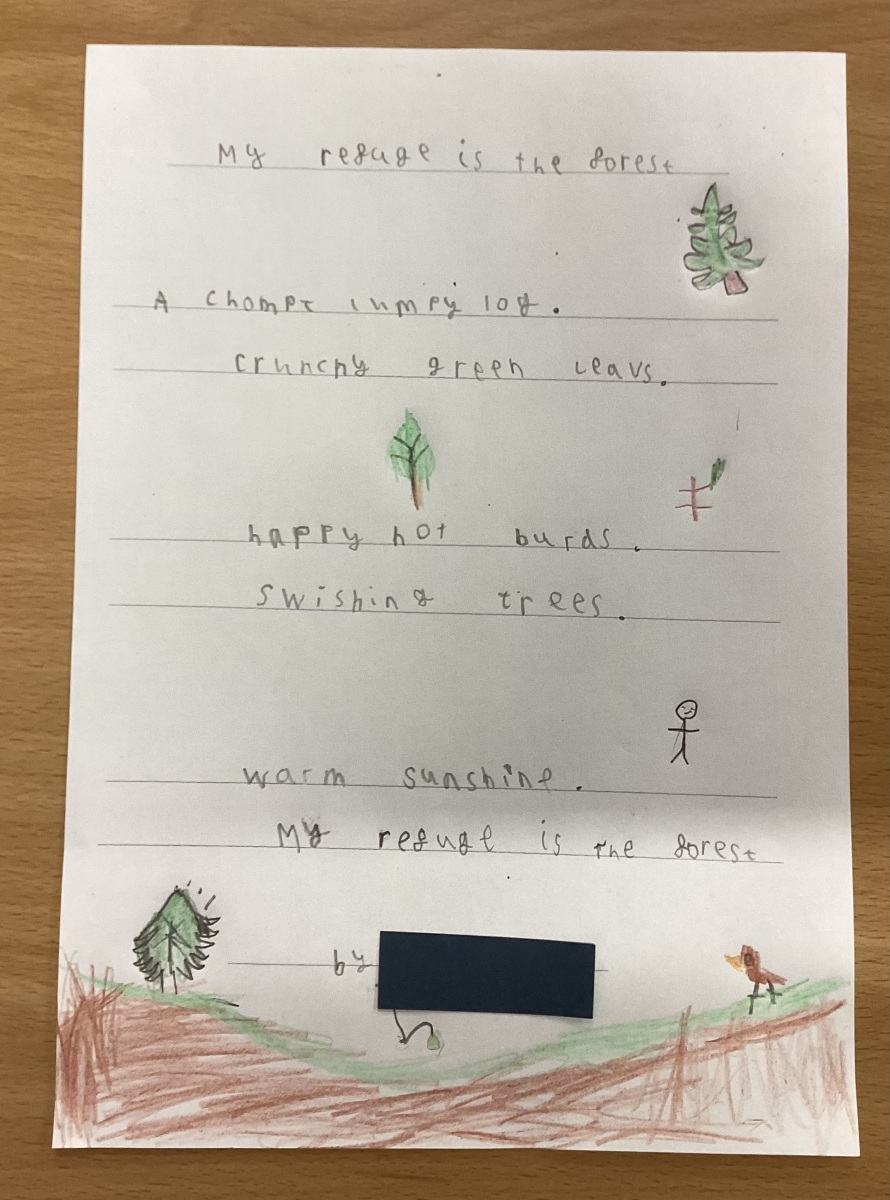 My refuge is the forest
A chompt lumpy log.
crunchy green leavs.
happy hot burds.
swishing trees.
warm sunshine.
My refuge is the forest
by